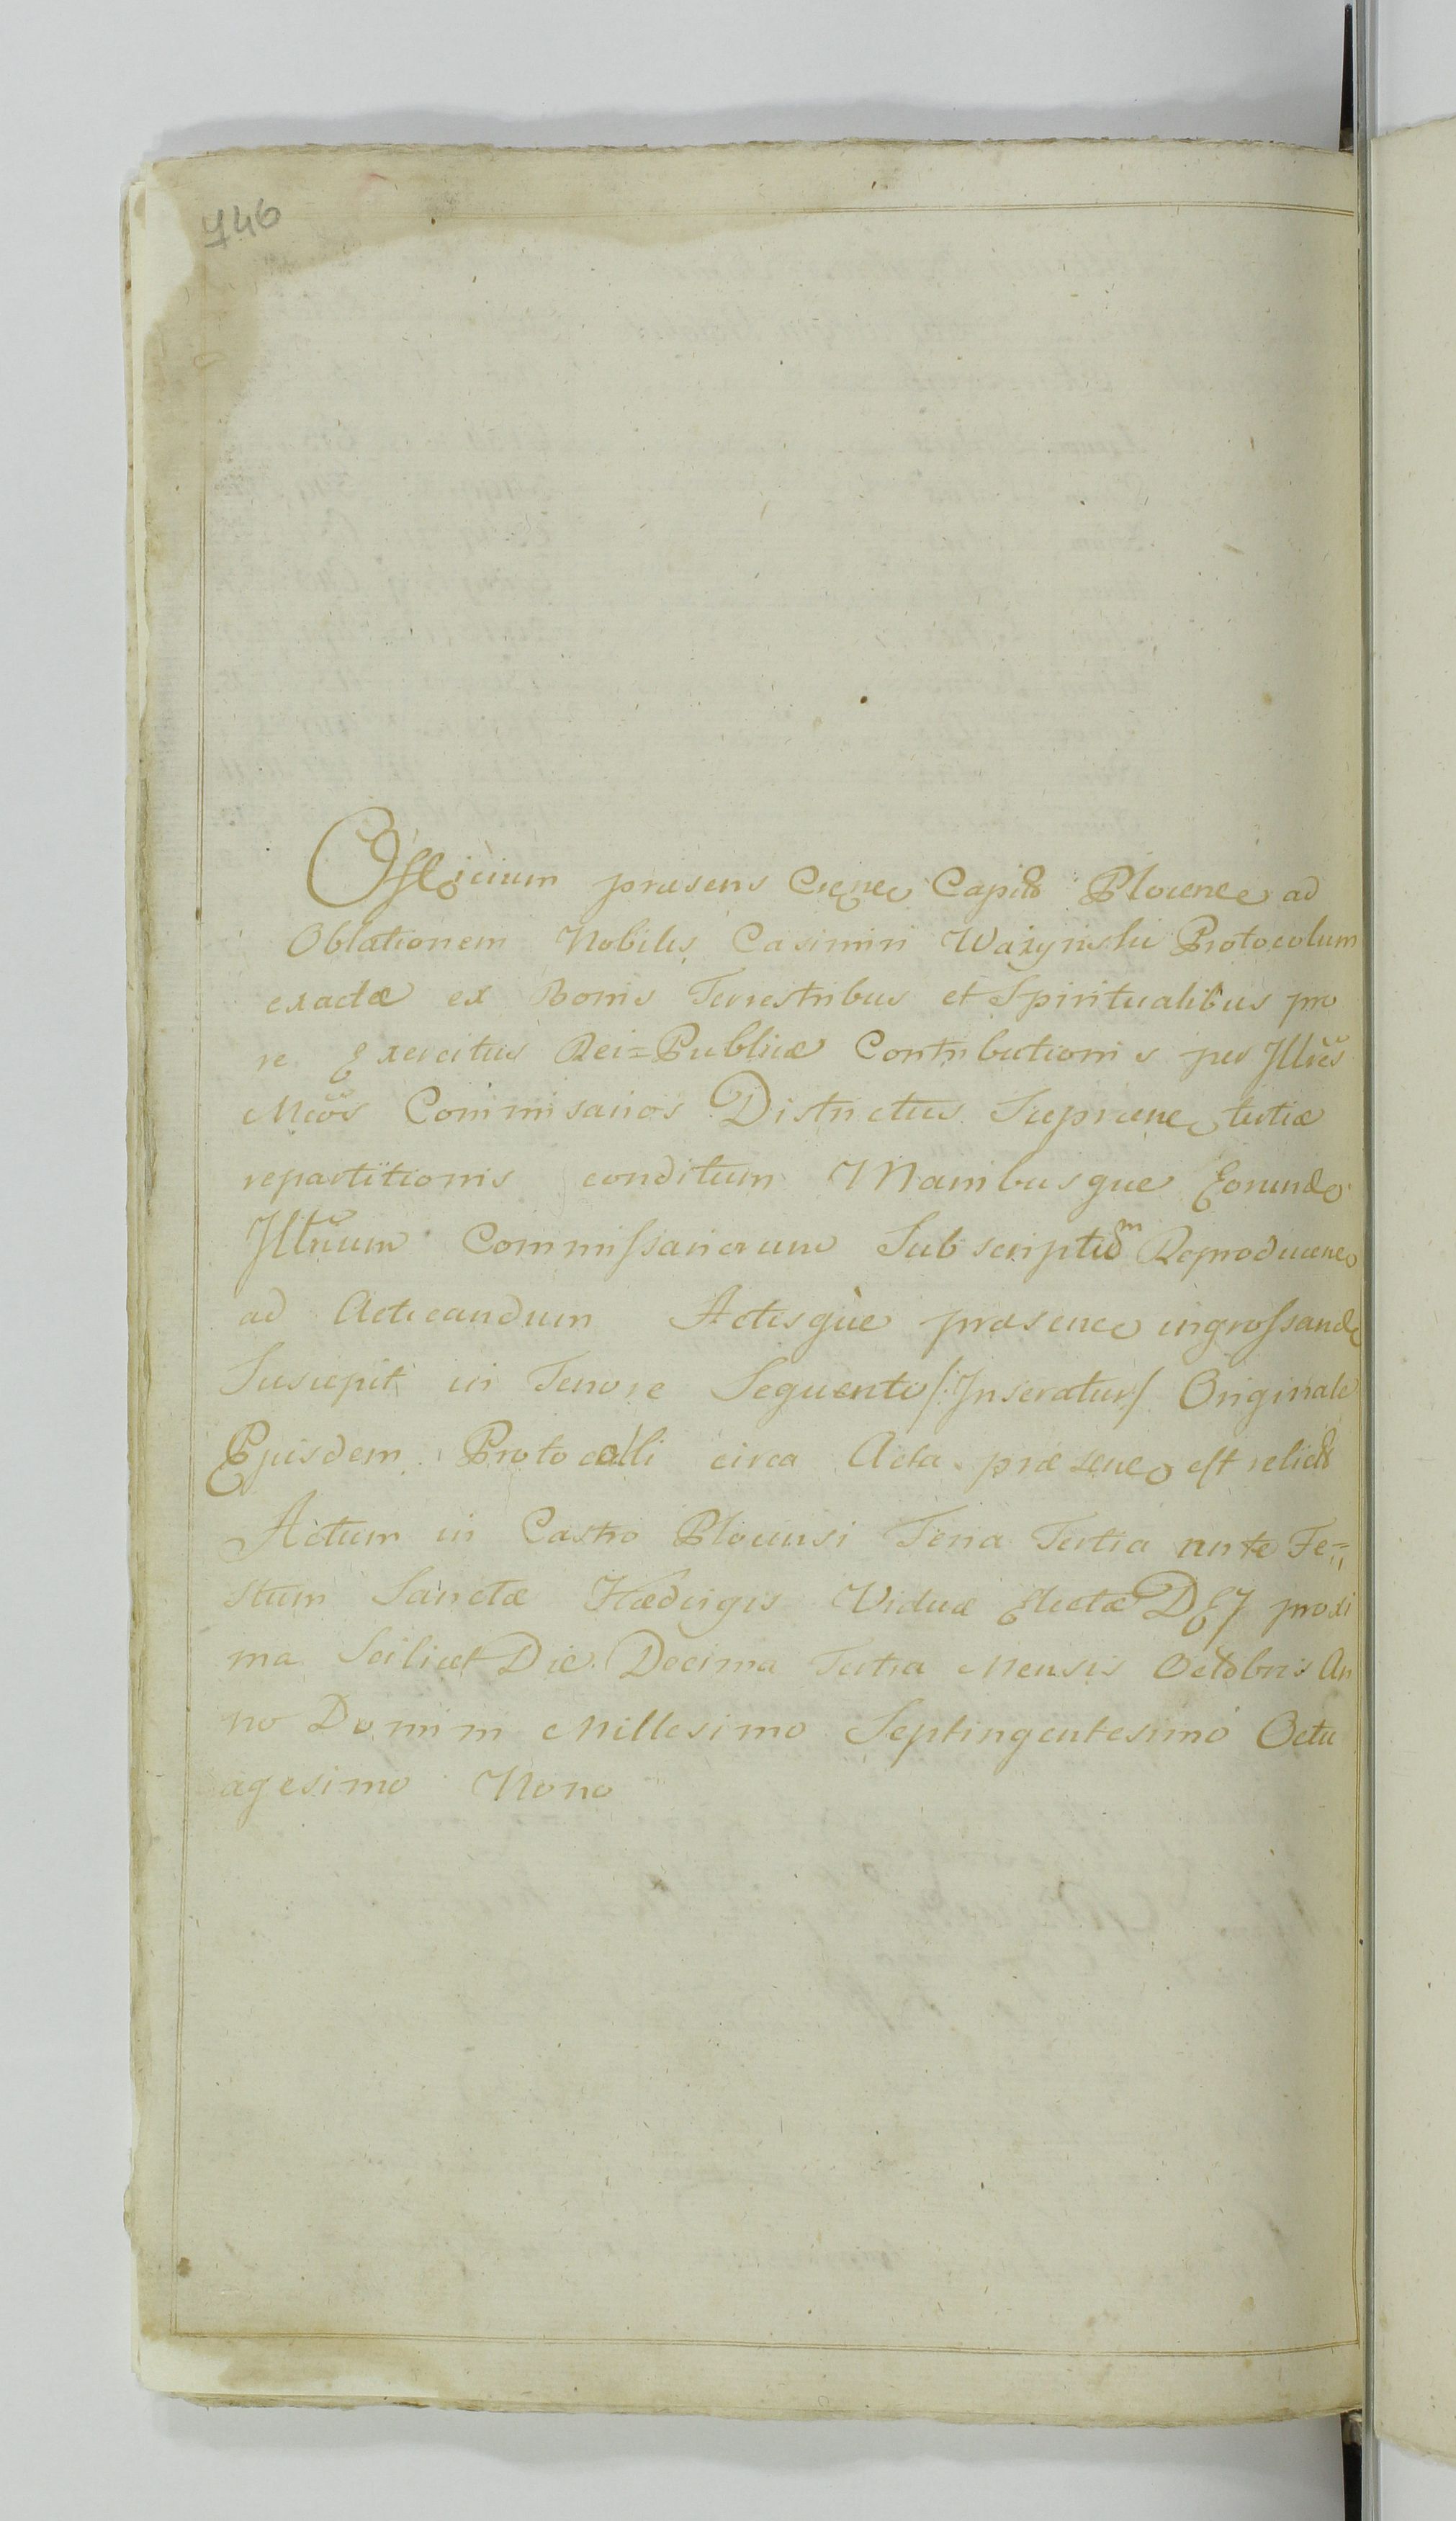 746
Officium præsens Crense Capitle Plocense ad
Oblationem Nobilis Casimiri Ważynski Protocolum
exactæ ex Bonis Terrestribus et Spiritualibus pro
re Exercitus Rei=Publicæ Contributionis per Illres
Mcos Commisarios Districtus Sieprcene tertiæ
repartitionis conditum Manibusque Eorunde
Illrium Commissariorum Subscriptum Reproducene
ad Acticandum Actisque præsene ingrossand
Suscepit in Tenore Sequenti /:Inseratur/ Originale
Ejusdem Protocolli circa Acta præsene est relict
Actum in Castro Plocensi Feria Tertia ante Fe=
stum Sanctæ Hædvigis Viduæ Electæ DEI proxi
ma Scilicet Die Decima Tertia Mensis Octobris An
no Domini Millesimo Septingentesimo Octu
agesimo Nono